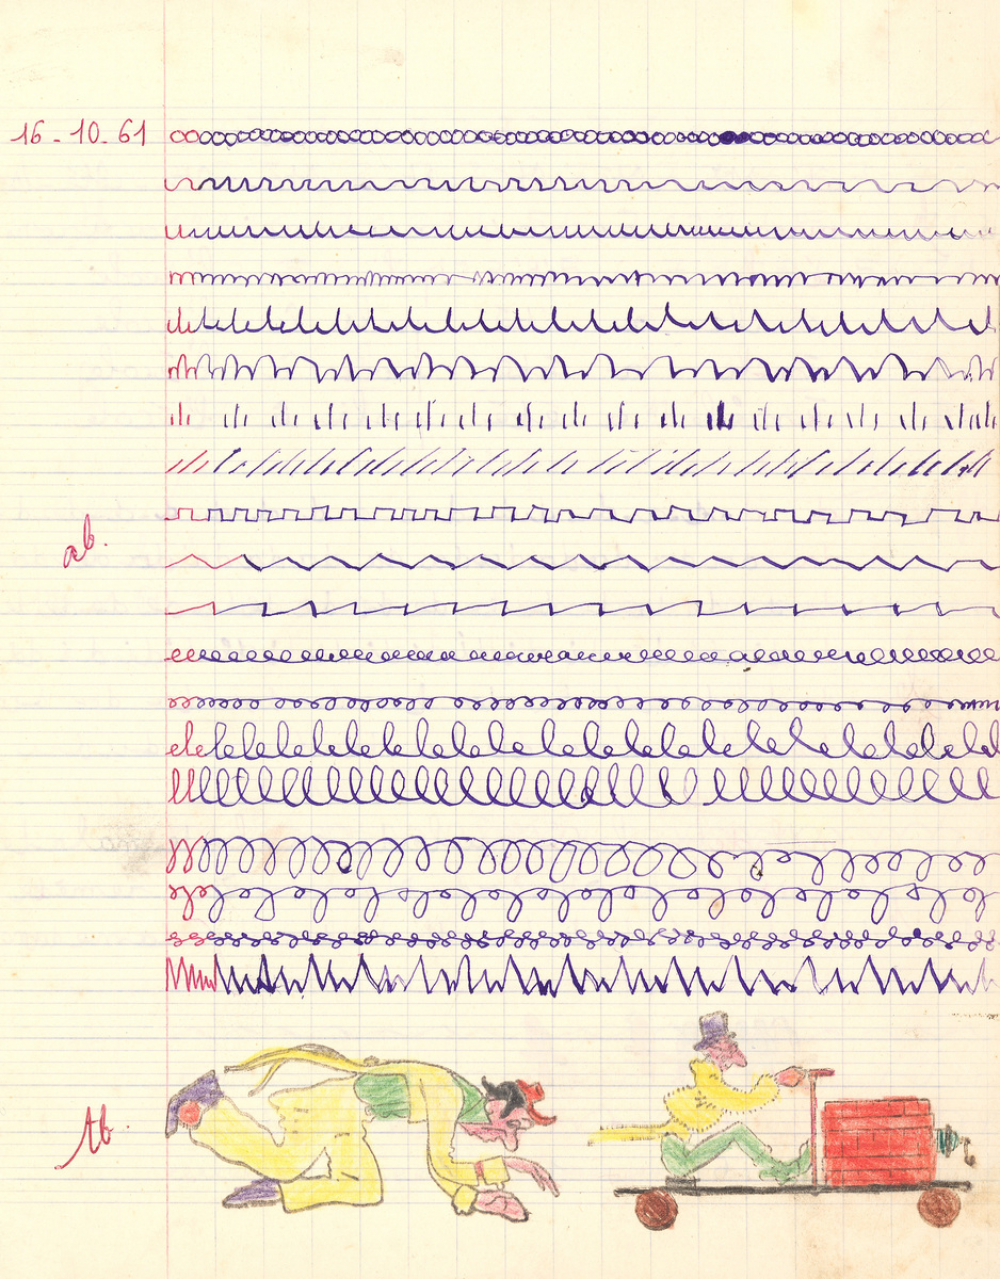 16-10-61
ab.
tb.